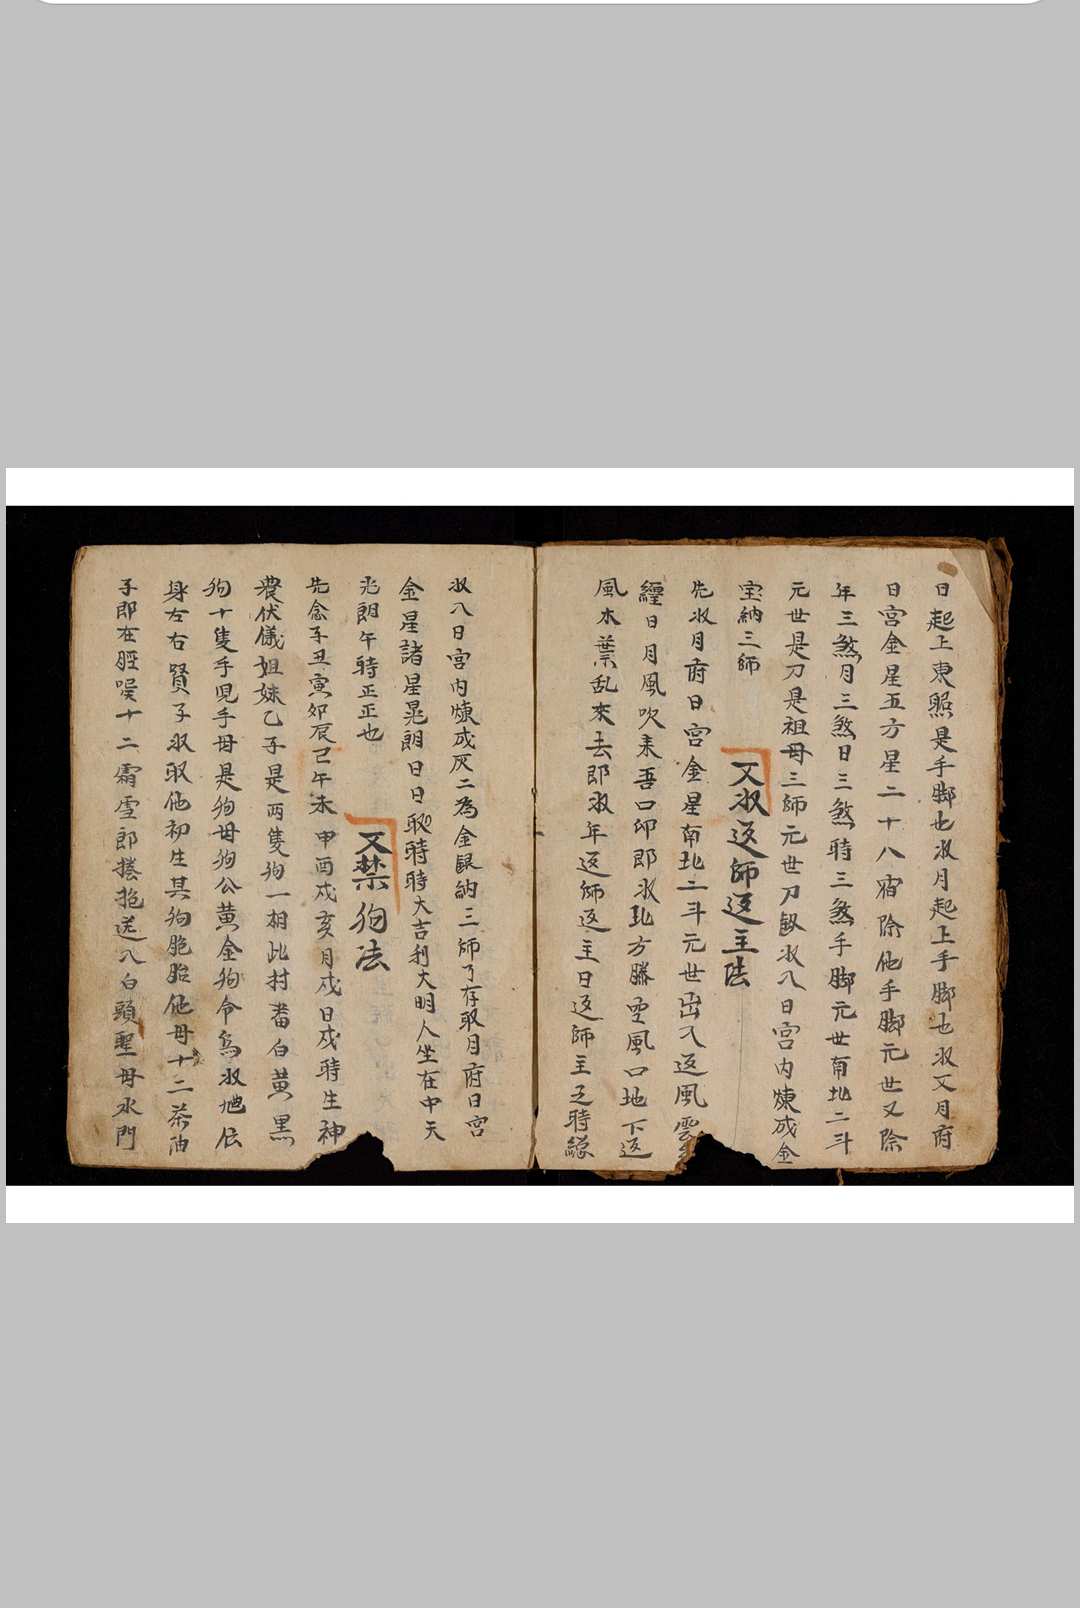 日起上東照是手脚也收月起上手脚也收又月府
日宮金星五方星二十八宿除他手脚元世又除
年三煞月三煞日三煞時三煞手脚元世南北二斗
元世是刀是祖母三師元世刀 收入日宮內煉成金
宝納三師
又收返師返主法
先收月府日宮金星南北二斗元世出入返風雲
經日月風吹来吾口即即收北方騰空風口地下返
風木葉乱來去即收年返師返主日返師主之時總
收入日宮内煉成灰二為金銀納三師了存取月府日宮
金星諸星晃朗日日取時時大吉利大明人坐在中天
光朗午時正正也
又禁狗法
先念子丑寅卯辰巳午未申酉戌亥月戌日戌時生神
農伏儀姐妹乙子是两隻狗一相比村畨白黄黑
狗十隻手児手母是狗母狗公黄金狗令烏收 
身左右賢子收取他初生其狗胞胎他母十二茶油
子即在 十二霜雪郎捲抱送入白頭聖母水門